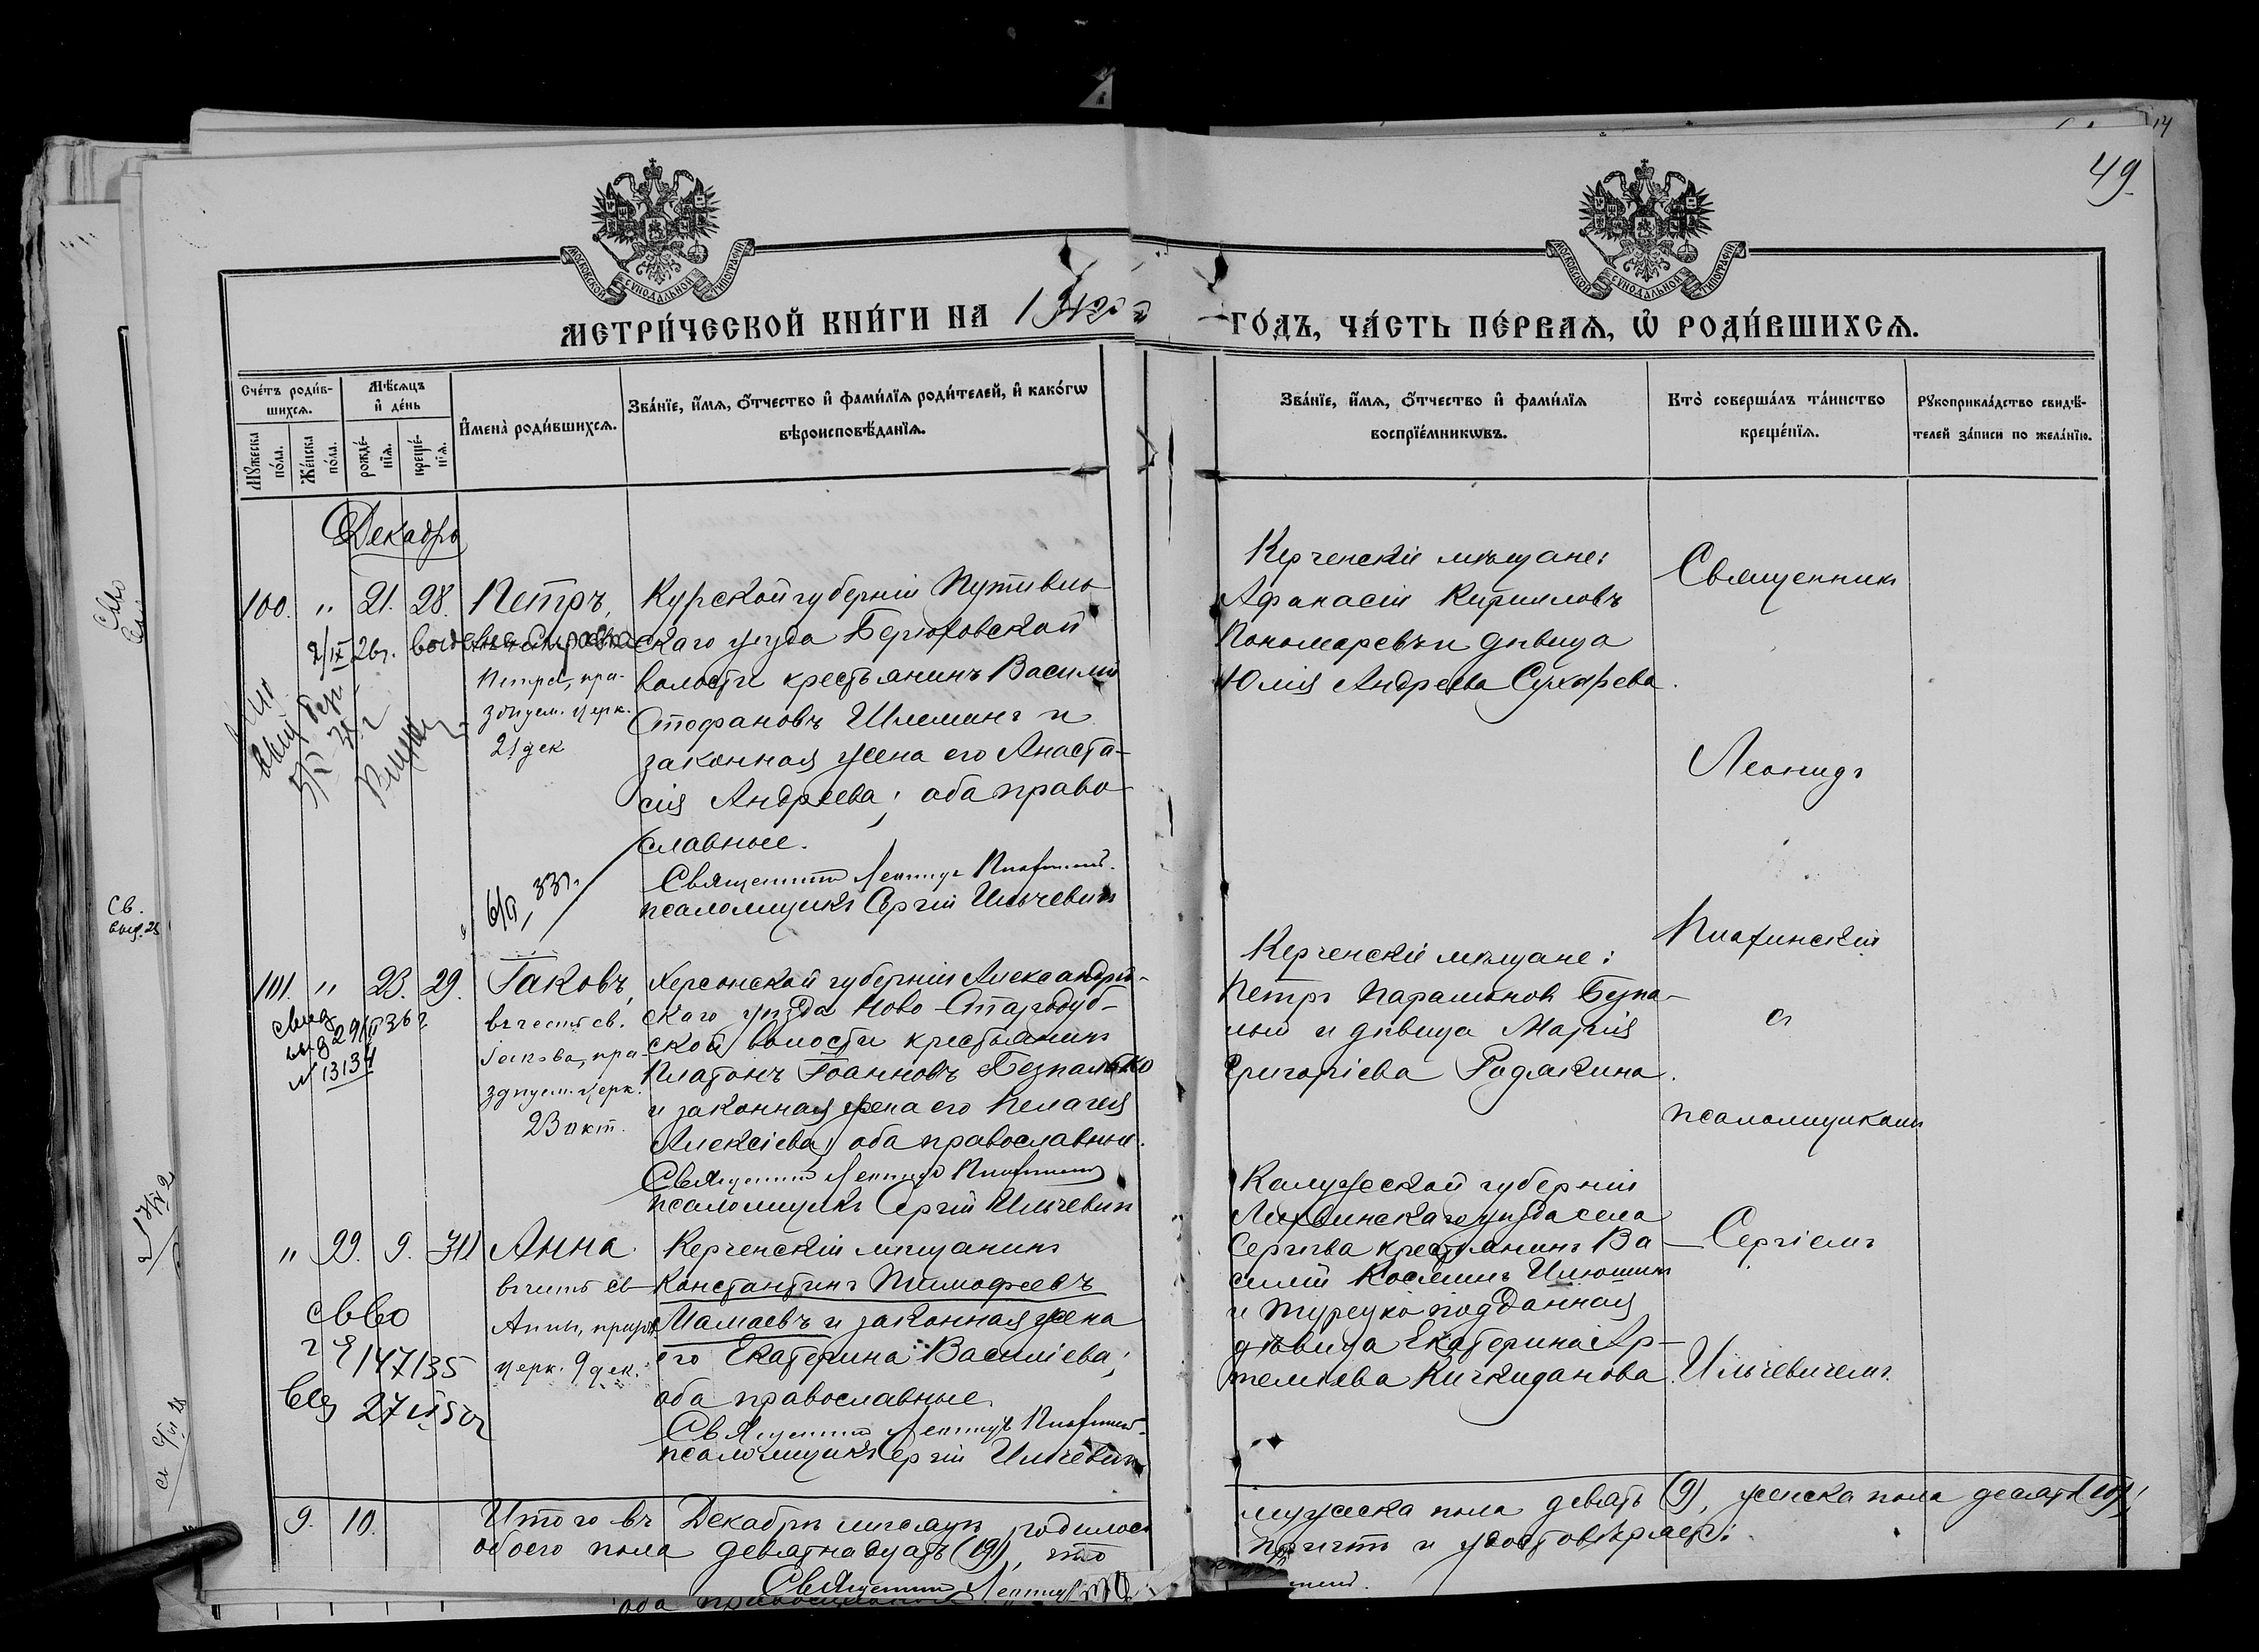 49
МОСКОВСКОЙ СѴНОДАЛЬНОЙ ТИПОГРАФІИ
МОСКОВСКОЙ СѴНОДАЛЬНОЙ ТИПОГРАФІИ
МЕТРИ́ЧЕСКОЙ КНИ́ГИ НА
ГО́ДЪ, ЧА́СТЬ ПЕ́РВАѦ, Ѡ҆ РОДИ́ВШИХСѦ.
Сче́тъ роди́в-
шихсѧ.
Мѣ́сѧцъ
и҆ де́нь
Мꙋ́жеска
по́ла.
Же́нска
по́ла.
рожде́-
нїѧ.
креще́-
нїѧ.
И҆мена̀ роди́вшихсѧ.
Зва́нїе, и҆́мѧ, ѻ҆́тчество и҆ фами́лїѧ роди́телей, и҆ како́гѡ
вѣроисповѣ́данїѧ.
Зва́нїе, и҆́мѧ, ѻ҆́тчество и҆ фами́лїѧ
воспрїе́мникѡвъ.
Кто̀ соверша́лъ та́инство
креще́нїѧ.
Рꙋкоприкла́дство свидѣ́-
телей за́писи по жела́нїю.
Декабрь
100. " 21. 28. Петръ,
Петра, пра-
зднуем. церк.
21 дек
Курской губерніи Путивль
скаго уѣзда Берюховской
волости крестьянинъ Василій
Стефановъ Шлеминъ и
законная жена его Анаста-
сія Андреева; оба право-
славные.
Священникъ Леонидъ
псаломщикъ Сергій Ильчевичъ
Керченскіе мѣщане:
Афанасій Кирилловъ
Пономаревъ и дѣвица
Юлія Андреева Сухарева.
Священникъ
Леонидъ
101. " 23. 29. Іаковъ,
въ честь св.
Іакова, пра-
зднуем. церк.
23 окт.
свид
выд 29/II 36 г.
№ 13134
Херсонской губерніи Александрій-
скаго уѣзда Ново-Стародуб-
ской волости крестьянинъ
Платонъ Іоанновъ Безпалько
и законная жена его Пелагея
Алексіева, оба православные.
Священникъ Леонидъ
псаломщикъ Сергій Ильчевичъ
Керченскіе мѣщане:
Петръ Парамоновъ
и дѣвица Марія
Григоріева Родякина.
съ
псаломщикомъ
" 99. 9. 31 Анна
въ честь св
Анны, празд
церк. 9 дек.
Св-во
147135
Керченскій мѣщанинъ
Константинъ Тимофеевъ
Мамаевъ и законная жена
его Екатерина Василіева;
оба православные.
Священникъ Леонидъ
псаломщикъ Сергій Ильчевичъ
Калужской губерніи
Лихвинскаго уѣзда села
Сергіева крестьянинъ Ва-
силій Косминъ Илюшинъ
и турецко-подданная
дѣвица Екатерина Ар-
теміева Кичкиданова.
Сергіемъ
Ильчевичемъ.
9. 10. Итого въ Декабрѣ мѣсяцѣ родилось
обоего пола девятнадцать (19), что
мужеска пола девять (9), женска пола десять (10)
причтъ и удостовѣряетъ:
Священникъ Леонидъ